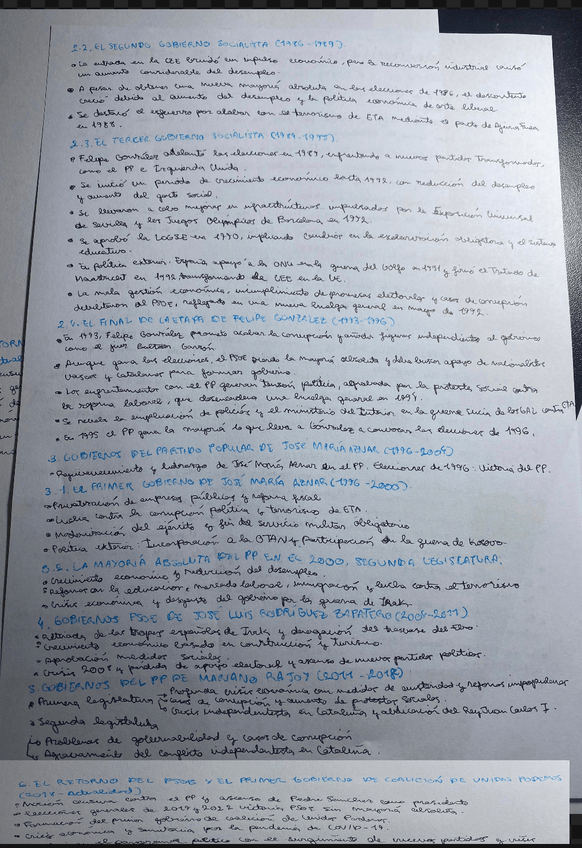 2.2. EL SEGUNDO GOBIERNO SOCIALISTA (1986-1989)
• La entrada en la CEE brindó un impulso económico, pero la reconversión industrial causó
un aumento considerable del desempleo.
• A pesar de obtener una nueva mayoría absoluta en las elecciones de 1986, el descontento
creció debido al aumento del desempleo y la política económica de corte liberal.
• Se destacó el esfuerzo por acabar con el terrorismo de ETA mediante el pacto de Ajuria Enea
en 1988.
2.3. EL TERCER GOBIERNO SOCIALISTA (1989-1993)
• Felipe González adelantó las elecciones en 1989, enfrentando a nuevos partidos
como el PP e Izquierda Unida.
• Se inició un periodo de crecimiento económico hasta 1992, con reducción del desempleo
y aumento del gasto social.
• Se llevaron a cabo mejoras en infraestructuras impulsadas por la Exposición Universal
de Sevilla y los Juegos Olímpicos de Barcelona en 1992.
• Se aprobó la LOGSE en 1990, implicando cambios en la escolarización obligatoria y el sistema
educativo.
• En política exterior, España apoyó a la ONU en la guerra del Golfo en 1991 y firmó el Tratado de
Maastricht en 1992 transformando la CEE en la UE.
• La mala gestión económica, incumplimiento de promesas electorales y casos de corrupción
debilitaron al PSOE, reflejado en una nueva huelga general en mayo de 1992.
2.4. EL FINAL DE LA ETAPA DE FELIPE GONZÁLEZ (1993-1996)
• En 1993, Felipe González promete acabar la corrupción y añadir figuras independientes al gobierno
como el juez Baltasar Garzón.
• Aunque gana las elecciones, el PSOE pierde la mayoría absoluta y debe buscar apoyo de nacionalistas
vascos y catalanes para formar gobierno.
• Los enfrentamientos con el PP generan tensión política, agravada por la protesta social contra
la reforma laboral, que desencadena una huelga general en 1994.
• Se revela la implicación de policías y el ministerio del Interior en la guerra sucia de los GAL contra ETA
• En 1995 el PP gana la mayoría lo que lleva a González a convocar las elecciones de 1996.
3. GOBIERNOS DEL PARTIDO POPULAR DE JOSE MARÍA AZNAR (1996-2004)
• Rejuvenecimiento y liderazgo de José María Aznar en el PP. Elecciones de 1996: Victoria del PP.
3.1. EL PRIMER GOBIERNO DE JOSÉ MARÍA AZNAR (1996-2000)
• Privatización de empresas públicas y reforma fiscal
• Lucha contra la corrupción política y terrorismo de ETA
• Modernización del ejército y fin del servicio militar obligatorio
• Política exterior: Incorporación a la OTAN y participación en la guerra de Kosovo.
3.2. LA MAYORÍA ABSOLUTA DEL PP EN EL 2000, SEGUNDA LEGISLATURA.
• Crecimiento económico y reducción del desempleo.
• Reformas en la educación, mercado laboral, inmigración y lucha contra el terrorismo
• Crisis económica y desgaste del gobierno por la guerra de Irak.
4. GOBIERNOS PSOE DE JOSE LUIS RODRÍGUEZ ZAPATERO (2004-2011)
• Retirada de las tropas españolas de Irak y derogación del trasvase del Ebro.
• Crecimiento económico basado en construcción y turismo.
• Aprobación medidas sociales.
• Crisis 2008 y pérdida de apoyo electoral y ascenso de nuevos partidos políticos.
5. GOBIERNOS DEL PP DE MARIANO RAJOY (2011-2018)
• Primera legislatura → Profunda crisis económica con medidas de austeridad y reformas impopulares
→ Casos de corrupción y aumento de protestas sociales.
→ Crisis independentista en Cataluña y abdicación del Rey Juan Carlos I.
• Segunda legislatura
→ Problemas de gobernabilidad y casos de corrupción
→ Agravamiento del conflicto independentista en Cataluña.
6. EL RETORNO DEL PSOE Y EL PRIMER GOBIERNO DE COALICIÓN DE UNIDAS PODEMOS
(2018-Actualidad)
• Moción censura contra el PP y ascenso de Pedro Sánchez como presidente
• Elecciones generales de 2019 y victoria PSOE sin mayoría absoluta.
• Formación del primer gobierno de coalición de Unidas Podemos.
• Crisis económica y sanitaria por la pandemia de COVID-19.
el panorama político con el surgimiento de nuevos partidos y crisis